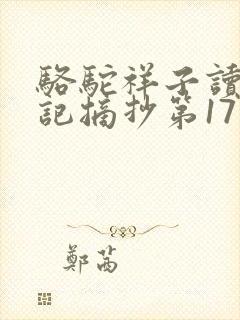 駱駝祥子讀
記摘抄第17
鄭茜